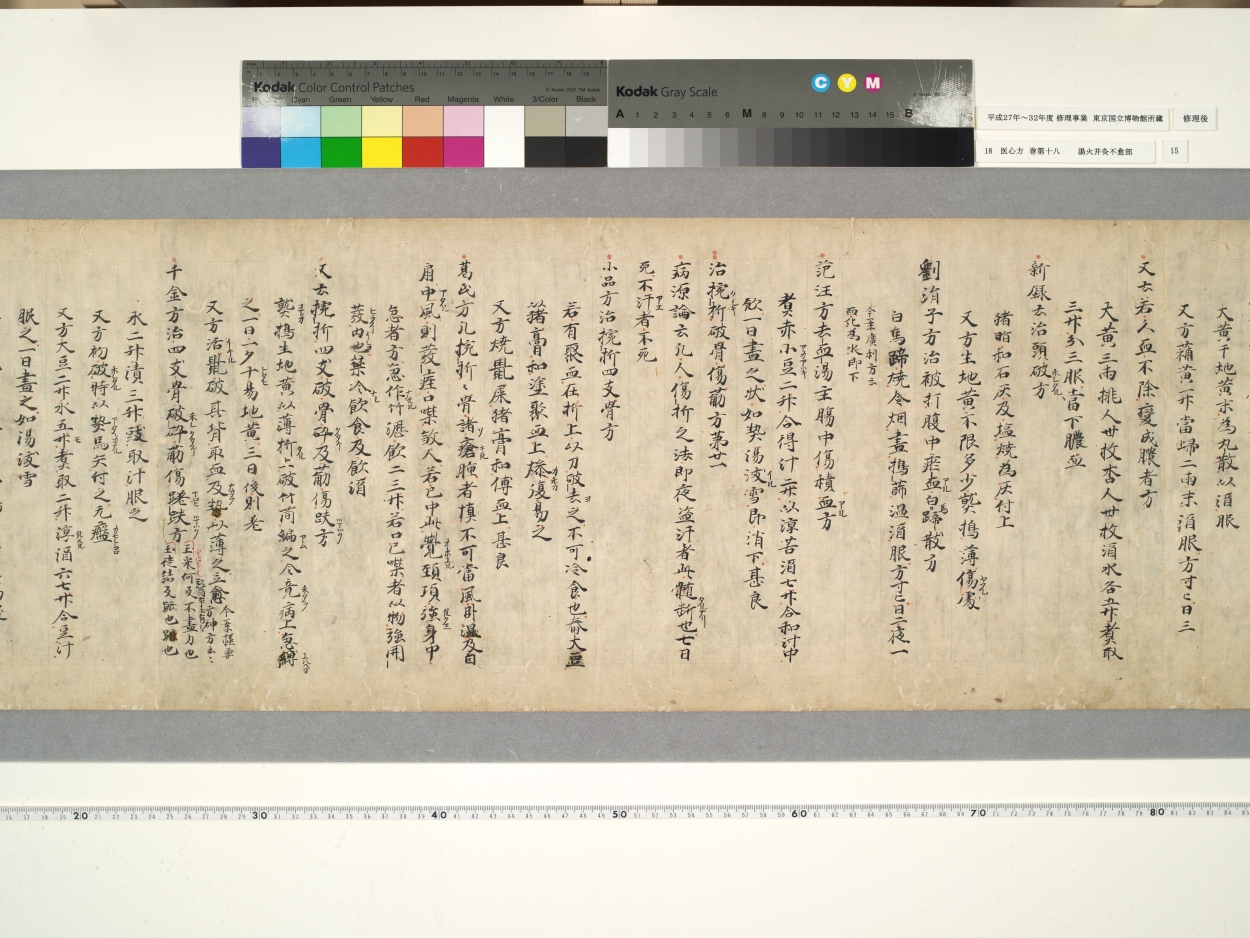 Kodak Color Control Patches
Cyan Green Yellow Red Magenta White 3/Color Black
Kodak Gray Scale
C Y M
A 1 2 3 4 5 6 M 8 9 10 11 12 13 14 15 B
平成27年～32年度 修理事業 東京国立博物館所蔵
修理後
18 医心方 巻第十八 湯火并灸不愈部
15
大黄干地黄末為丸散以酒服
又方蒲黄一升當歸二兩末酒服方寸匕日三
又云若久血不除變成膿者方
大黄三兩桃人卅枚杏人卅枚酒水各五升煮取
三升分三服當下膿血
新録云治頭破方
猪脂和石灰及塩燒為灰付上
又方生地黄不限多少熟搗薄傷處
劉涓子方治被打腹中瘀血白馬蹄散方
白馬蹄燒令烟盡搗篩温酒服方寸匕日三夜一
今案廣利方云
血化為水即下
范汪方去血湯主腸中傷積血方
煮赤小豆二升合得汁二升以淳苦酒七升合和汁中
飲一日盡之狀如熱湯沃雪即消下甚良
治捥折破骨傷筋方第廿一
病源論云凡人傷折之法即夜盗汗者此髓斷也七日
死不汗者不死
小品方治捥折四支骨方
若有聚血在折上以刀破去之不可冷食也舂大豆
以猪膏和塗聚血上燥復易之
又方燒鼠屎猪膏和傅血上甚良
葛氏方凡捥折骨諸瘡腫者慎不可當風卧濕及自
扇中風則發痙口噤殺人若已中此覺頸項強身中
急者方急作竹瀝飲二三升若口已噤者以物強開
發内也禁冷飲食及飲酒
又云捥折四支破骨碎及筋傷跌方
熟搗生地黄以薄折上破竹簡編之令竟病上急縛
之一日一夕十易地黄三日後則老
又方活鼠破其背取血及熱以薄之立愈
千金方治四支骨破碎筋傷蹉跌方
水二升漬三升豉取汁服之
又方初破時以熱馬矢付之无瘢
又方大豆二升水五升煮取二升淳酒六七升合豆汁
服之一日盡之如湯沃雪
20 30 40 50 60 70 80